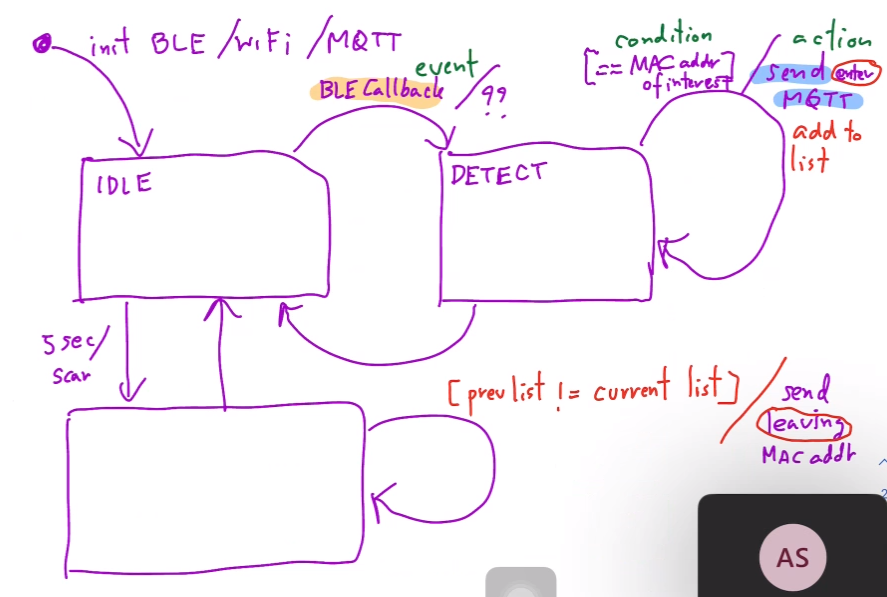 init BLE/WiFi/MQTT
event
BLE Callback /??
condition
[== MAC addr]
of interest
/ action
send enter
MQTT
add to
list
IDLE
DETECT
5 sec/
scan
[prev list != current list] /
send
leaving
MAC addr
AS